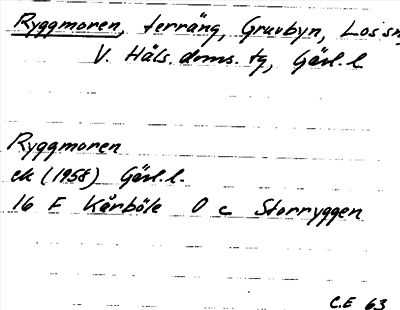 Ryggmoren, terräng, Gruvbyn, Los sn,
V. Häls. doms. tg, Gävl. l.
Ryggmoren
ek (1958) Gävl. l.
16 F Kårböle 0 c Storryggen
C.E 63